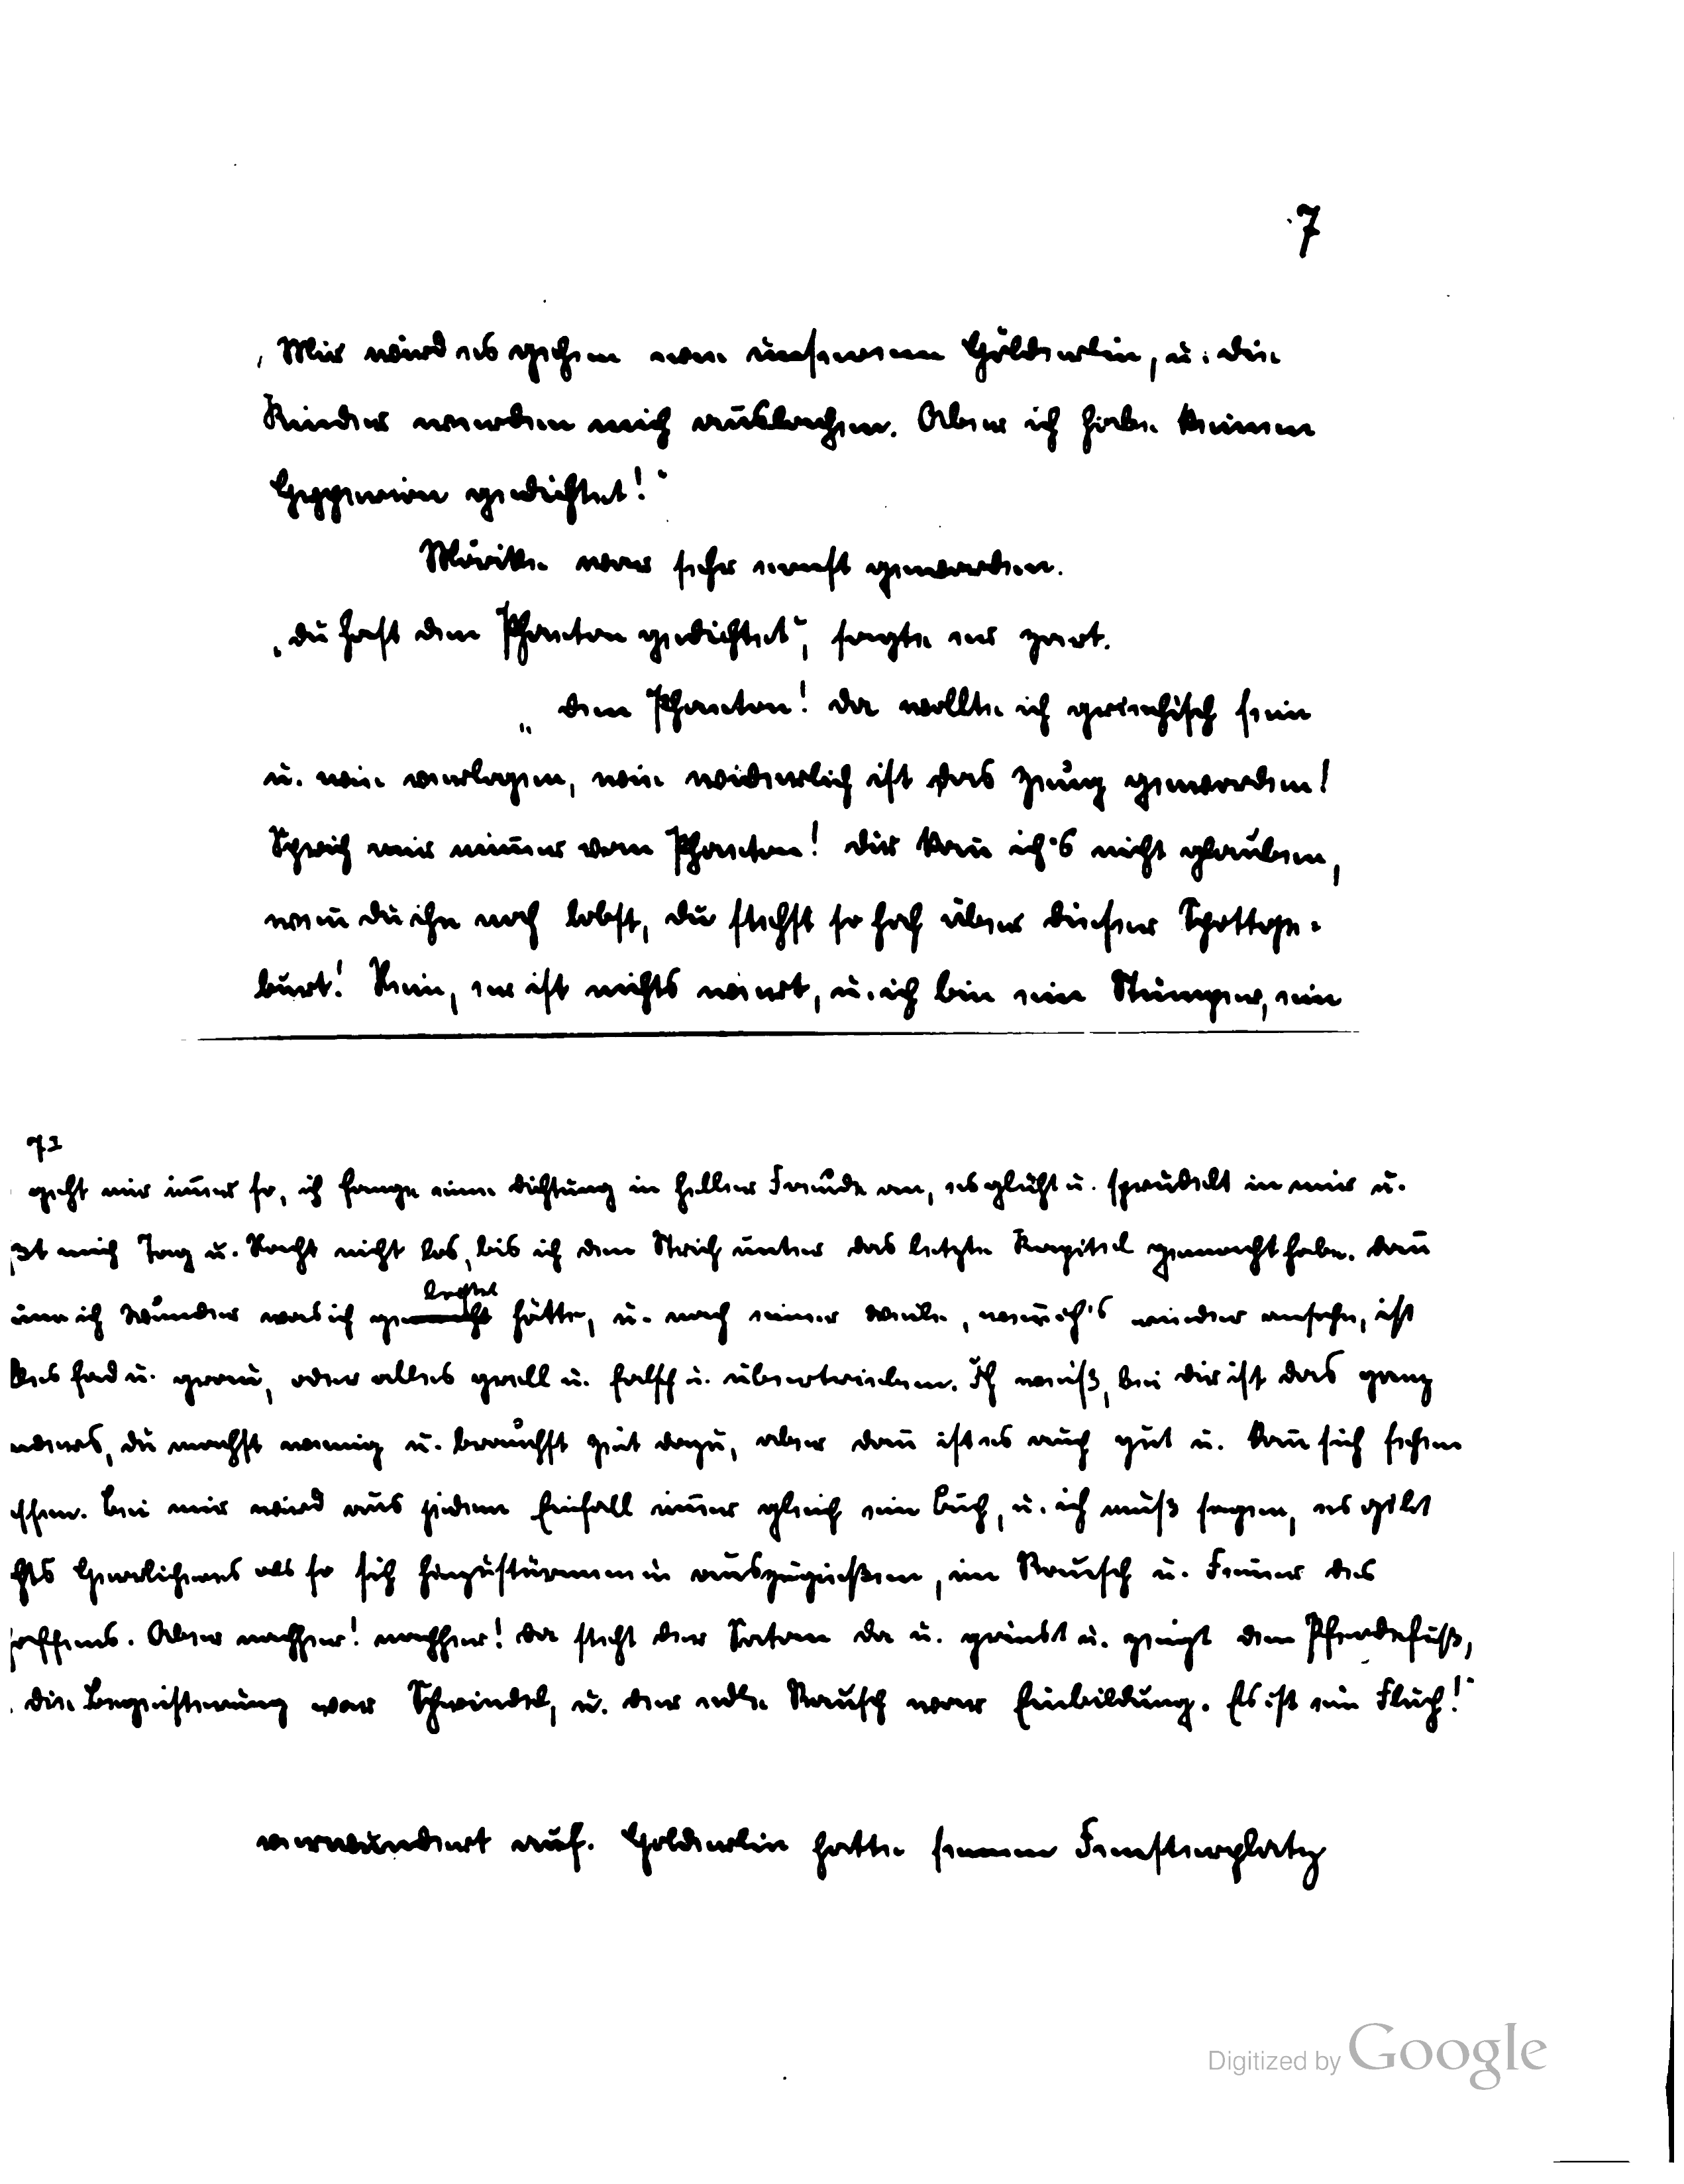 7
„Mir wird es gehen wie unserem Hölderlin, u. die
Kinder werden mich auslachen. Aber ich habe keinen
Hyperion gedichtet!“
Mörike war sehr ernst geworden.
„du hast den Phaeton gedichtet“, sagte er zart.
„den Phaeton! da wollte ich griechisch sein
u. wie verlogen, wie widerlich ist das Zeug geworden!
Sprich mir nimmer vom Phaeton! dir kann ich's nicht glauben,
wenn du ihn noch lobst, du stehst so hoch über dieser Spottge-
burt! Nein, er ist nichts wert, u. ich bin ein Stümper, ein
71
geht mir immer so, ich fange eine dichtung in heller Freude an, es glüht u. sprudelt in mir u.
ßt mich Tag u. Nacht nicht los, bis ich den Strich unter das letzte Kapitel gemacht habe. dann
ine ich Wunder was ich gemacht hätte, u. nach einer Weile, wenn ich's wieder ansehe, ist
les fad u. grau, oder alles grell u. falsch u. übertrieben. Ich weiß, bei dir ist das ganz
nders, du machst wenig u. brauchst Zeit dazu, aber dann ist es auch gut u. kann sich sehen
ssen. bei mir wird aus jedem Einfall immer gleich ein buch, u. ich muß sagen, es gibt
chts Herrlicheres als so sich hinzustürmen u auszugießen, im Rausch u. Feuer des
affens. Aber nachher! nachher! da steht der Satan da u. grinst u. zeigt den Pferdefuß,
die begeisterung war Schwindel, u. der edle Rausch war Einbildung. Es ist ein Fluch!“
verwundert auf. Hölderlin hatte seinen Fensterplatz
Digitized by Google